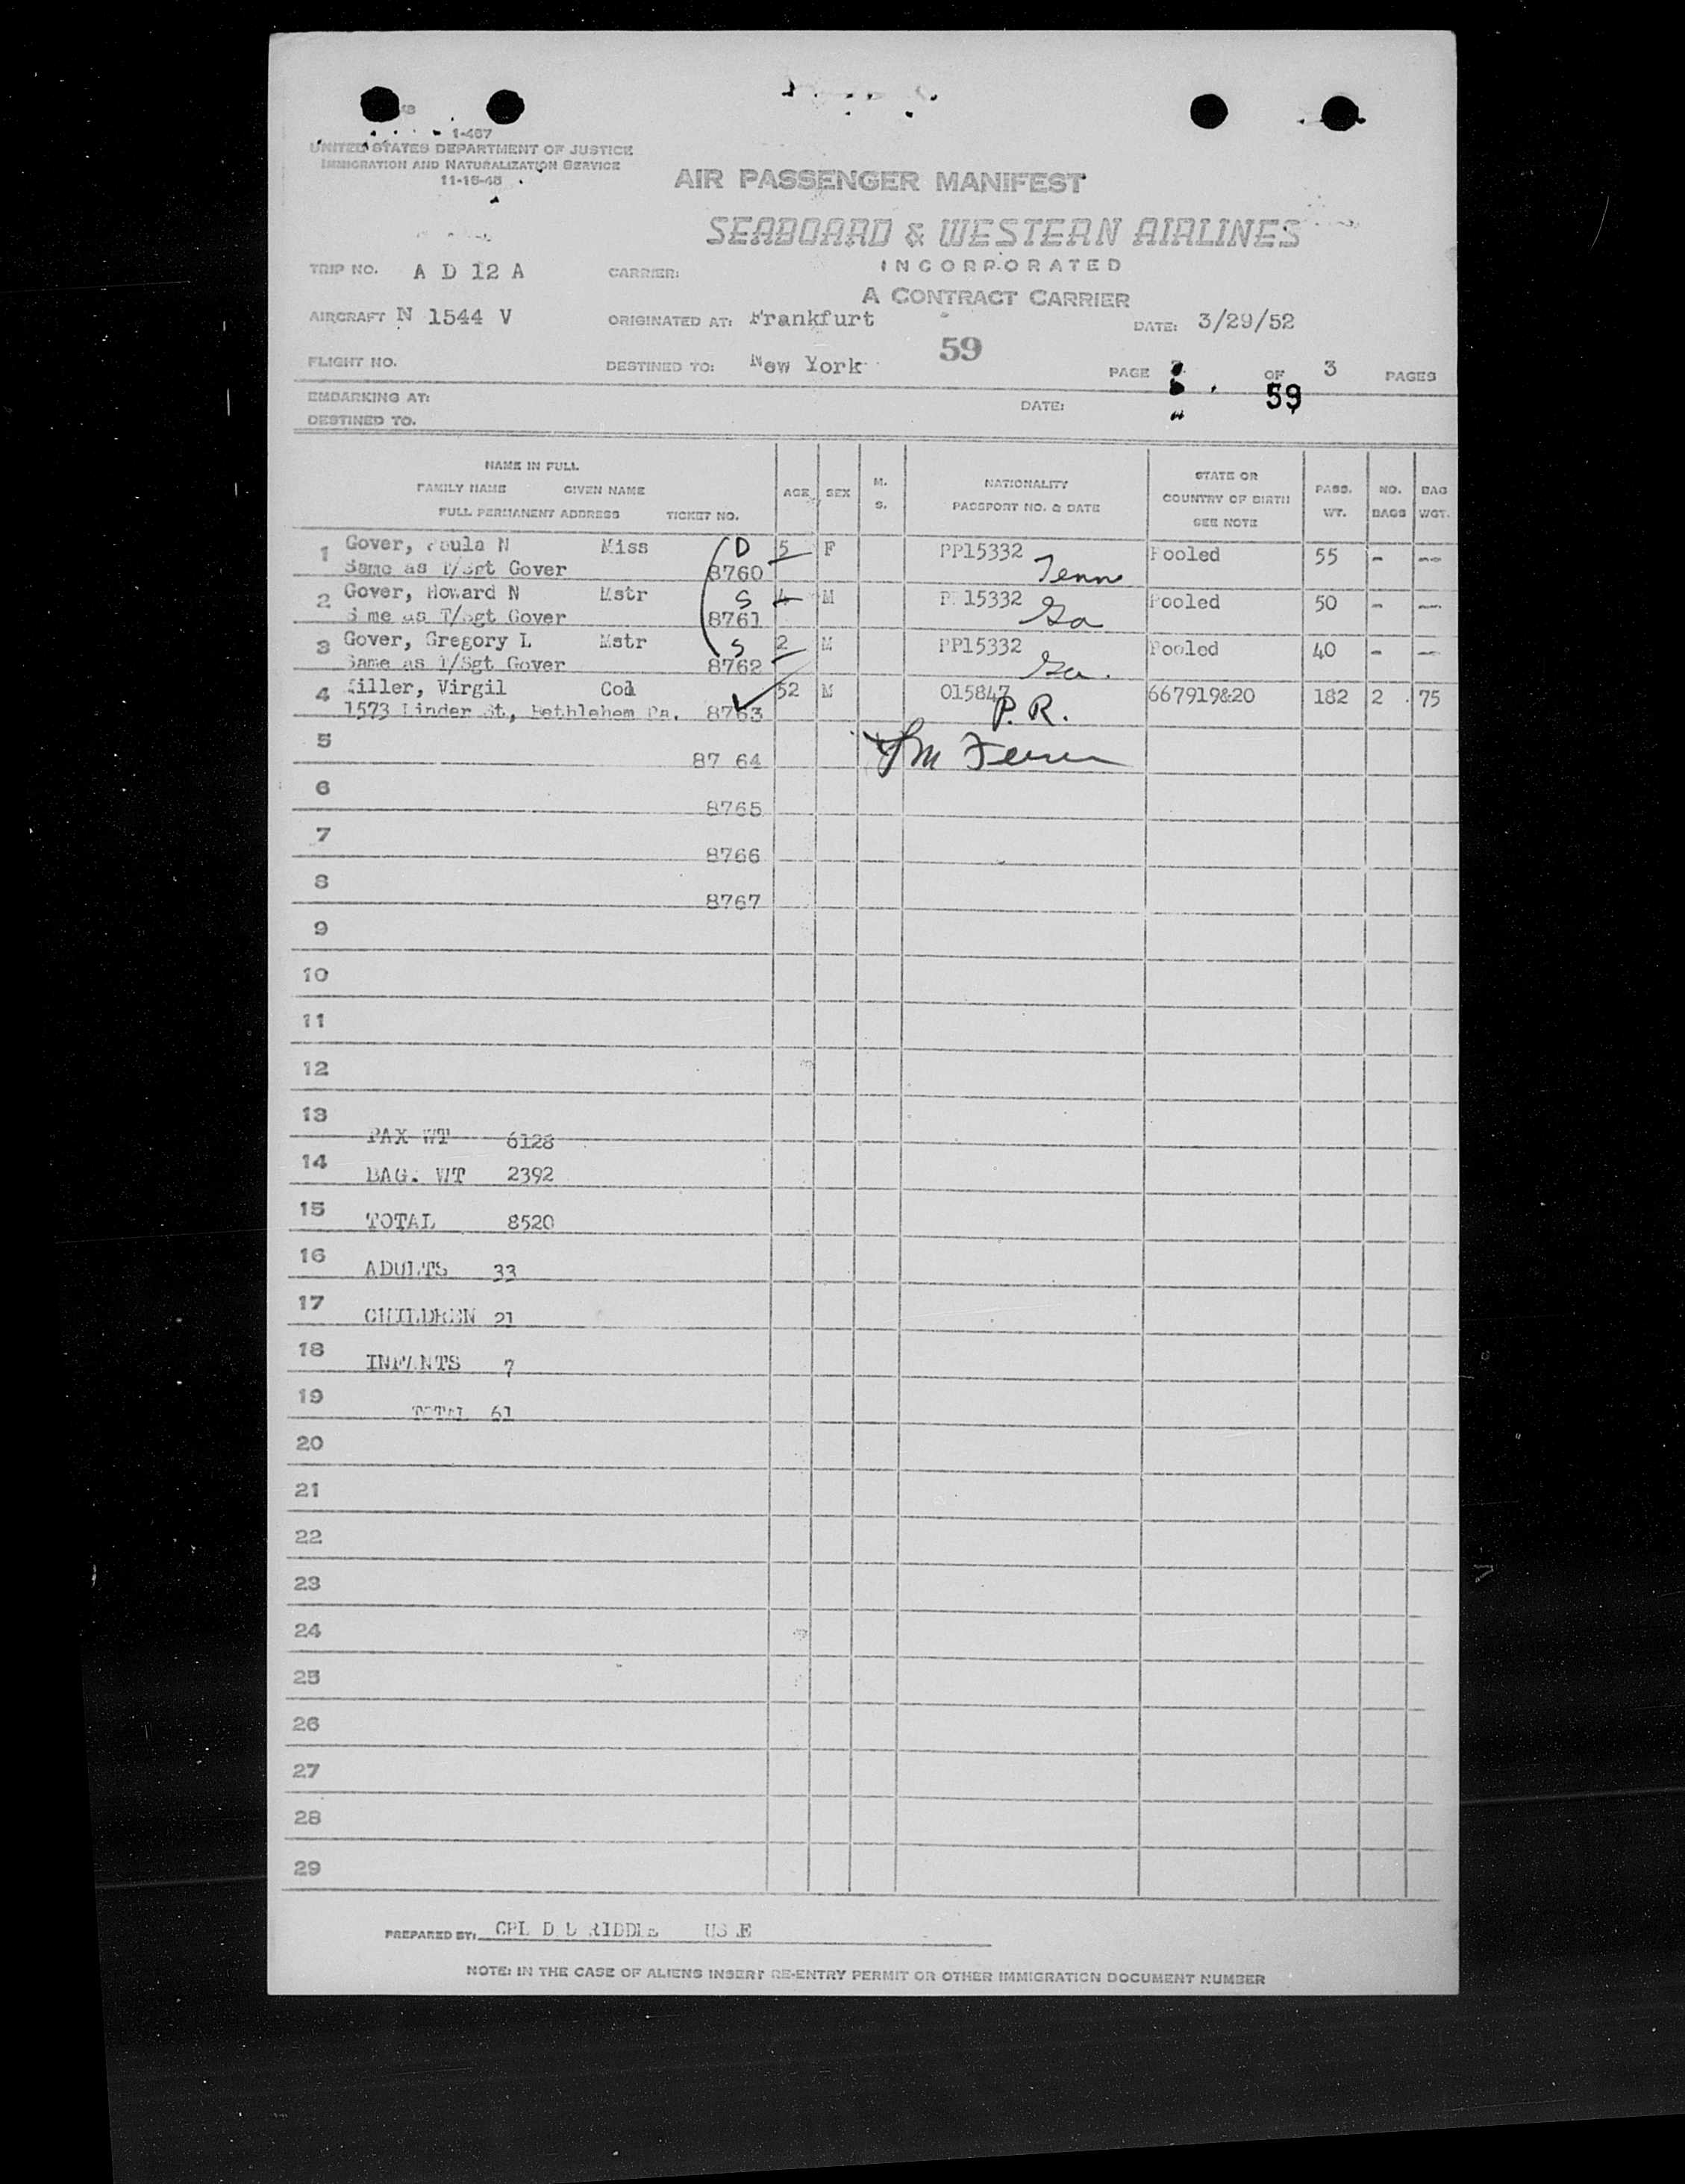 1-467
UNITED STATES DEPARTMENT OF JUSTICE
IMMIGRATION AND NATURALIZATION SERVICE
11-15-48
AIR PASSENGER MANIFEST
SEABOARD & WESTERN AIRLINES
INCORPORATED
A CONTRACT CARRIER
TRIP NO. A D 12 A CARRIER:
AIRCRAFT N 1544 V ORIGINATED AT: Frankfurt DATE: 3/29/52
59
FLIGHT NO. DESTINED TO: New York PAGE OF 3 PAGES
59
EMBARKING AT: DATE:
DESTINED TO.
NAME IN FULL
FAMILY NAME GIVEN NAME
FULL PERMANENT ADDRESS TICKET NO.
AGE SEX M. S. NATIONALITY PASSPORT NO. & DATE STATE OR COUNTRY OF BIRTH SEE NOTE PASS. WT. NO. BAGS BAG WGT.
1 Gover, Paula N Miss D 5 F PP15332 Pooled 55 - --
Same as T/Sgt Gover 8760 Tenn
2 Gover, Howard N Mstr S 4 M PP15332 Pooled 50 - --
Same as T/Sgt Gover 8761 Ga
3 Gover, Gregory L Mstr S 2 M PP15332 Pooled 40 - --
Same as T/Sgt Gover 8762 Ga.
4 Virgil Col 52 M 015847 667919&20 182 2 75
1573 Linder St, Bethlehem Pa. 8763 P.R.
5 87 64
6 8765
7 8766
8 8767
9
10
11
12
13 PAX WT 6128
14 BAG. WT 2392
15 TOTAL 8520
16 ADULTS 33
17 CHILDREN 21
18 INFANTS 7
19 TOTAL 61
20
21
22
23
24
25
26
27
28
29
PREPARED BY: CPL D L RIDDLE
NOTE: IN THE CASE OF ALIENS INSERT RE-ENTRY PERMIT OR OTHER IMMIGRATION DOCUMENT NUMBER